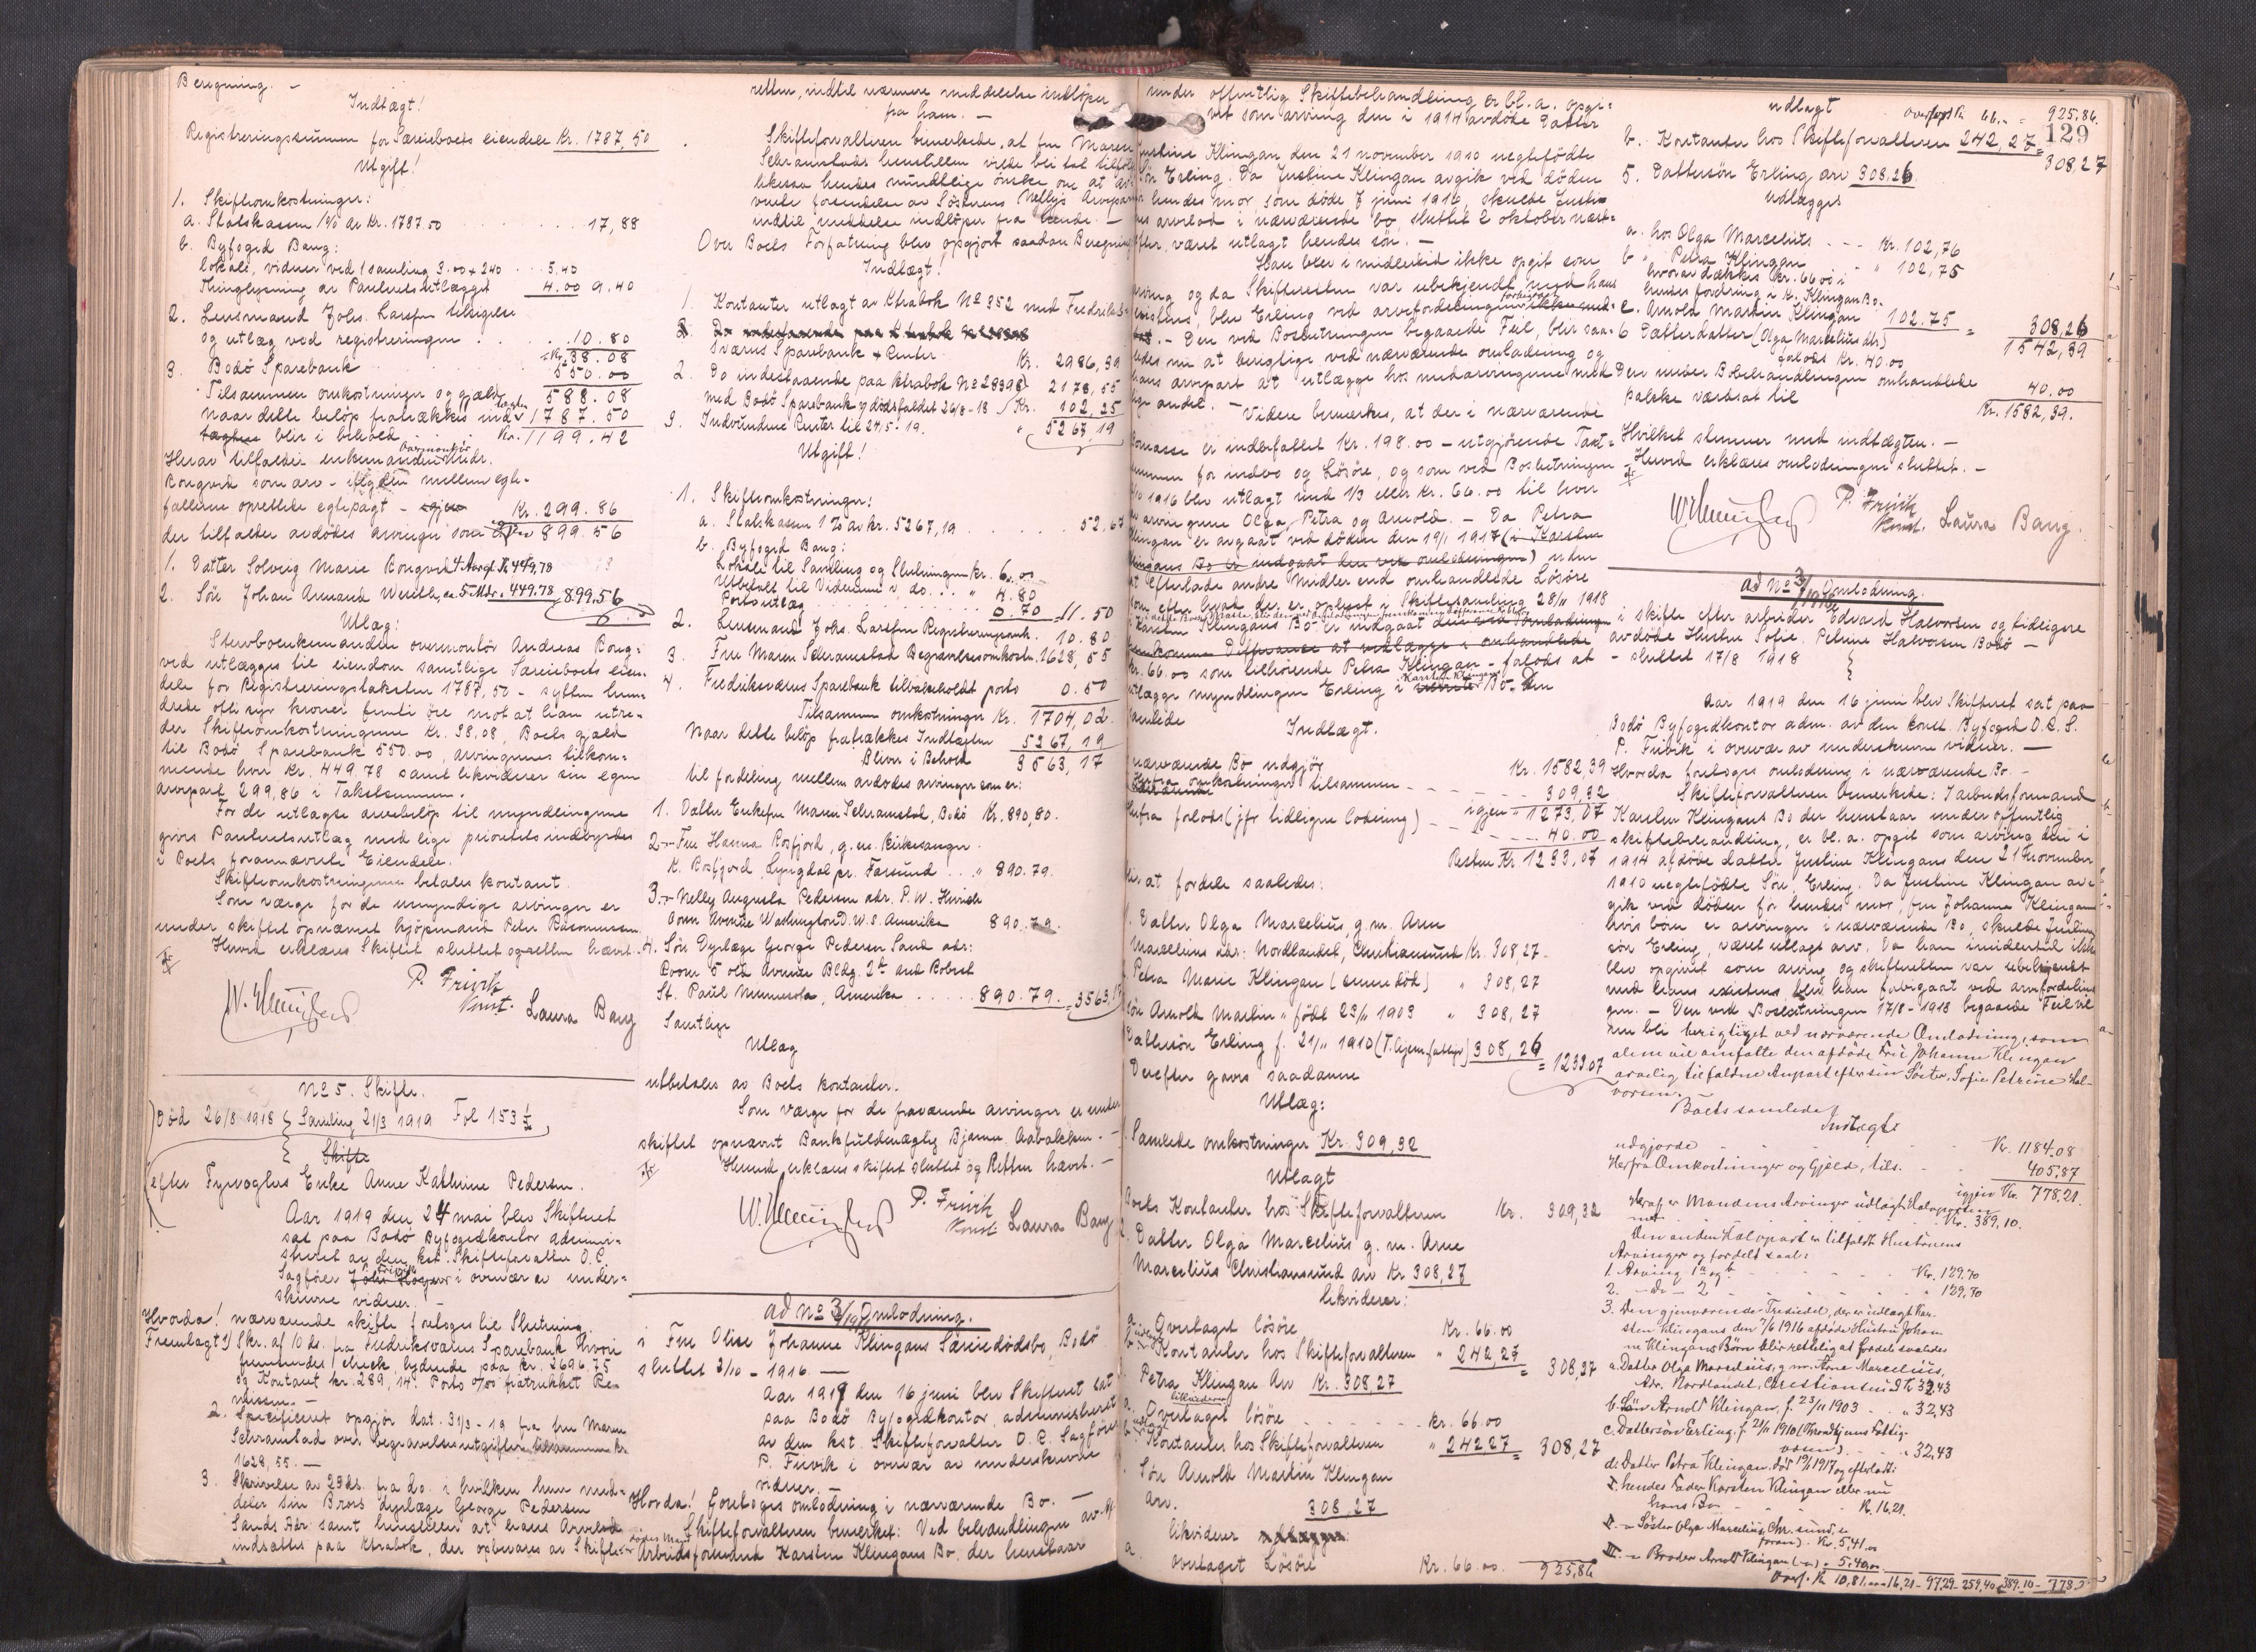 Beregning. –
Indtægt!
Registreringssummen for Særeieboets eiendeler Kr. 1787,50
Utgift!
1. Skifteomkostninger:
a. Statskassen 1% av Kr. 1787.50 17,88
b. Byfoged Bang:
lokale, vidner ved 1 samling 3.00 + 240 5.40
Thinglysning av Panteretsutlægget 4.00 9.40
2. Lensmand Johs. Larsen tilsigelse
og utlæg ved registreringen 10.80
Kr. 38.08
3. Bodö Sparebank 550.00
Tilsammen omkostninger og gjæld 588.08
naar dette belöp fratrækkes indtægten 1787.50
blir i behold Kr. 1199.42
Herav tilfalder enkemanden overmontör Andr.
Rongved som arv – ifölge mellem egte-
fællerne oprettede egtepagt – Kr. 299.86
der tilfalder avdödes arvinger som er 899.56
1. Datter Solveig Marie Rongved 4 Aar gl. Kr. 449,78
2. Sön Johan Armand ca. 5 Mdr. 449.78 899,56
Utlæg:
Stervboenkemanden overmontör Andreas Rong-
ved utlægges til eiendom samtlige Særeieboets eien-
dele for Registreringstaksten 1787,50 – sytten hun-
drede otti syv kroner femti öre mot at han utre-
der Skifteomkostningerne Kr. 38,08, Boets gjæld
til Bodö Sparebank 550.00, arvingernes tilkom-
mende hver Kr. 449,78 samt likviderer sin egen
arvepart 299,86 i Takstsummen.
For de utlagte arvebelöp til myndlingerne
givis Panteretsutlæg med lige prioritets indbyrdes
i Boets foranævnte Eiendele.
Skifteomkostningerne betales kontant.
Som værge for de umyndige arvinger er
under skiftet opnævnt kjöpmand Peter Rasmussen
Herved erklæres Skiftet sluttet og retten hævet.
P. Frivik
Konst. Laura Bang
No 5. Skifte.
Död 26/8 1918 Samling 21/3 1919 Fol 153
Skifte
efter Fyrvogters Enke Anne Kathrine Pedersen.
Aar 1919 den 24 mai blev Skifteret
sat paa Bodö Byfogedkontor admini-
streret av den kst. Skifteforvalter O.R.
Sagförer Frivik i overvær av under-
skrevne vidner. –
Hvorda! nærværende skifte foretoges til Slutning.
Fremlagt 1) Skr. af 10 ds. fra Fredriksværns Sparebank hvori
fremsendes check lydende paa kr. 2696.75
og Kontant kr. 289,14. Porto 0/50 fratrukket Re-
missen. –
2. Specificeret opgjör dat. 31/3-19 fra fru Maren
Schramstad over begravelsesutgifter tilsammen kr.
1628,55. –
3. Skrivelse av 23 ds. fra do. i hvilken hun med-
deler sin Brors dyrlæge George Pedersen
Sands Adr samt henstiller at hans Arvelod
indsættes paa Ktrabok, der opbevares av Skifte-
retten, indtil nærmere meddelelse indlöper
fra ham. –
Skifteforvalteren bemerkede, at fru Maren
Schramstads henstillen vilde bli tat tilfölge
likesaa hendes mundtlige önske om at av-
vente forsendelse av Sösterens Nellys Arvepart
indtil meddelse indlöper fra hende. –
Over Boets Forfatning blev opgjort saadan Beregning
Indtægt!
1. Kontanter utlagt av Ktrabok No 352 med Fredriks-
værns Sparebank + Renter Kr. 2986,39
2. Do indestaaende paa Ktrabok No 28398 2178,55
med Bodö Sparebank v/ dödsfaldet 26/8-18 Kr.
3. Indvundne Renter til 24/5-19. 102,25
5267,19
Utgift!
1. Skifteomkostninger:
a. Statskassen 1% av kr. 5267,19 52.67
b. Byfoged Bang:
Lokale til Samling og Slutningen Kr. 6.00
Utbetalt til Vidnerne v. do. 4.80
Portoutlæg 0.70 11.50
2. Lensmand Johs. Larsen Registreringsomk. 10.80
3. Fru Maren Schramstad Begravelsesomkostn. 1628,55
4. Fredriksværns Sparebank tilbakeholdt porto 0.50
Tilsammen omkostninger Kr. 1704,02.
Naar dette belöp fratrækkes Indtægten 5267,19
Bliver i Behold 3563,17
til fordeling mellem avdödes arvinger som er:
1. Datter Enkefru Maren Schramstad, Bodö Kr. 890,80.
2. – Fru Hanna Rosfjord, g.m. kirkesanger
K. Rosfjord Lyngdal pr. Farsund 890.79.
3. – Nelly Augusta Pedersen adr. P. W.
Avenue Washington D. W. S. Amerika 890.79.
4. Sön Dyrlæge George Pedersen Sand adr:
Room 5 old Avenue Bldg. 2te and Robert
St. Paul Minnesota, Amerika 890.79. 3563,17
Samtlige
Utlæg
utbetales av Boets kontanter.
Som værge for de fraværende arvinger er under
skiftet opnævnt Bankfuldmægtig Bjarne Aabakken. –
Herved erklæres skiftet sluttet og Retten hævet. –
P. Frivik
Konst. Laura Bang
ad No 3/1916 Omlodning.
i Fru Oline Johanne Klingans Særeiedödsbo, Bodö
sluttet 2/10 – 1916. –
Aar 1919 den 16 juni blev Skifteret sat
paa Bodö Byfogedkontor, administreret
av den kst. Skifteforvalter O.R. Sagförer
P. Frivik i overvær av underskrevne
vidner. –
Hvorda! foretoges omlodning i nærværende Bo. –
Skifteforvalteren bemerket: Ved behandlingen av
Arbeidsformand Karsten Klingans Bo, der henstaar
under offentlig Skiftebehandling er bl. a. opgi-
vet som arving den i 1914 avdöde Datter
Justine Klingan den 21 november 1910 uegtefödte
Sön Erling. Da Justine Klingan avgik ved döden
för hendes mor som döde 7 juni 1916, skulde Justi-
nes arvelod i nærværende bo, sluttet 2 oktober næst-
efter, været utlagt hendes sön. –
Han blev imidlertid ikke opgit som
arving og da Skifteretten var ubekjendt med hans
existens, blev Erling ved arvefordelingen forbigaat
– Den ved Boslutningen begaaede Feil, blir saa-
ledes nu at berigtige ved nærværende omlodning og
hans arvepart at utlægge hos medarvingerne med
lige andel. – Videre bemerkes, at der i nærværende
Bomasse er inderfattet Kr. 198.00 – utgjörende Takst-
summen for indbo og Lösöre, og som ved Boslutningen
2/10 1916 blev utlagt med 1/3 eller Kr. 66.00 til hver
av arvingerne Olga, Petra og Arnold. – Da Petra
Klingan er avgaat ved döden den 19/1 1917 uden
at efterlade andre Midler end omhandlede Lösöre
som efter hvad der er oplyst i Skiftesamling 28/11 1918
i Karsten Klingans Bo er indgaat
kr. 66.00 som tilhörende Petra Klingan – falods at
utlægge myndlingen Erling i Karsten Klingans Bo. Den
samlede
Indtægt.
nærværende Bo udgjör Kr. 1582,39
Herfra omkostninger tilsammen 309,32
igjen 1273,07
Herfra forlods (jfr tidligere lodning) 40.00
Resten Kr. 1233,07
blir at fordele saaledes:
1. Datter Olga Marcelius g.m. Arne
Marcelius adr: Nordlandet, Christiansund Kr. 308,27
Petra Marie Klingan (senere död) 308,27
Sön Arnold Martin födt 23/11 1903 308,27
Dattersön Erling f. 21/11 1910 308,26 = 1233.07
Derefter gaves saadanne
Utlæg:
Samlede omkostninger Kr. 309,32
Utlagt
Boets Kontanter hos Skifteforvalteren Kr. 309,32
2. Datter Olga Marcelius g.m. Arne
Marcelius Christiansund Arv Kr 308,27
likviderer:
a. Overtaget lösöre Kr. 66.00
b. Kontanter hos Skifteforvalteren 242,27 = 308,27
Petra Klingan Arv Kr. 308.27
likviderer
a. Overtaget lösöre Kr. 66.00
b. Kontanter hos Skifteforvalteren 242,27 = 308,27
Sön Arnold Martin Klingan
Arv. 308,27
likviderer
a. overtaget Lösöre Kr. 66.00 925,86
udlagt overfört Kr 66.- = 925,86.
129
b. Kontanter hos Skifteforvalteren 242,27 = 308,27
5. Dattersön Erling arv 308,26
Udlægges
a. hos Olga Marcelius Kr. 102,76
b. Petra Klingan 102,75
hvorav dækkes Kr. 66.00 i
hendes fordring i K. Klingans Bo.
c. Arnold Martin Klingan 102.75 = 308,26
6 Datterdatter (Olga Marcelius dtr.) 1542,39
falods Kr. 40.00
Den under Bobehandlingen omhandlede
værdsat til 40.00
Kr. 1582,39.
Hvilket stemmer med indtægten. –
Herved erklæres omlodningen sluttet. –
P. Frivik
Konst. Laura Bang.
ad No 3/1918 Omlodning.
i skifte efter arbeider Edvard Halvorsen og tidligere
avdöde Hustru Sofie Petrine Halvorsen Bodö –
– sluttet 17/8 1918
Aar 1919 den 16 juni blev Skifteret sat paa
Bodö Byfogedkontor adm. av den konst. Byfoged O.R.S.
P. Frivik i overvær av underskrevne vidner. –
Hvorda foretoges omlodning i nærværende Bo. –
Skifteforvalteren bemerkede: I arbeidsformand
Karsten Klingans Bo der henstaar under offentlig
skiftebehandling, er bl. a. opgit som arving den i
1914 afdöde Datter Justine Klingans den 21 November
1910 uegtefödte Sön, Erling. Da Justine Klingan av-
gik ved döden för hendes mor, fru Johanne Klingan
hvis börn er arvinger i nærværende Bo, skulde Justines
sön Erling, været utlagt arv. Da han imidlertid ikke
blev opgivet som arving og skifteretten var ubekjendt
med hans existens, blev han forbigaat ved arvefordelin-
gen. – Den ved Boslutningen 17/8-1918 begaaede Feil vil
nu bli berigtiget ved nærværende Omlodning, som
alene vil omfatte den afdöde Fru Johanne Klingan
arvelig tilfaldne Anpart efter sin Söster, Sofie Petrine Hal-
vorsen.
Boets samlede
Indtægt
udgjorde Kr. 1184.08
Herfra Omkostninger og Gjæld, tils. 405,87
igjen Kr. 778,21.
Heraf er Mandens Arvinger udlagt Halvparten
med Kr. 389,10.
Den anden Halvpart er tilfaldt Hustruens
Arvinger og fordelt saal:
1. Arving 1a og b Kr. 129.70
2. – do – 2 129,70
3. Den gjenværende Trediedel, der er udlagt Kar-
sten Klingans den 7/6 1916 afdöde Hustru Johan-
ne Klingans Börn blir rettelig at fordele saaledes
a. Datter Olga Marcelius, g.m. Arne Marcelius,
Adr. Nordlandet, Christiansund Kr 32,43
b. Sön Arnolt Klingan, f. 23/11 1903 32,43
c. Dattersön Erling, f. 21/11 1910 (Throndhjems Fattig-
væsen) 32,43
d. Datter Petra Klingan. död 19/1 1917 og efterlod:
I. hendes Fader Karsten Klingan eller nu
hans Bo Kr. 16.21.
II. – Söster Olga Marcelius, Chr.sund, se
foran) Kr. 5,41.
III. – Broder Arnolt Klingan (–) 5.40
Overf. Kr. 10,81 16,21 – 97,29 – 259,40 389.10 – 778,2